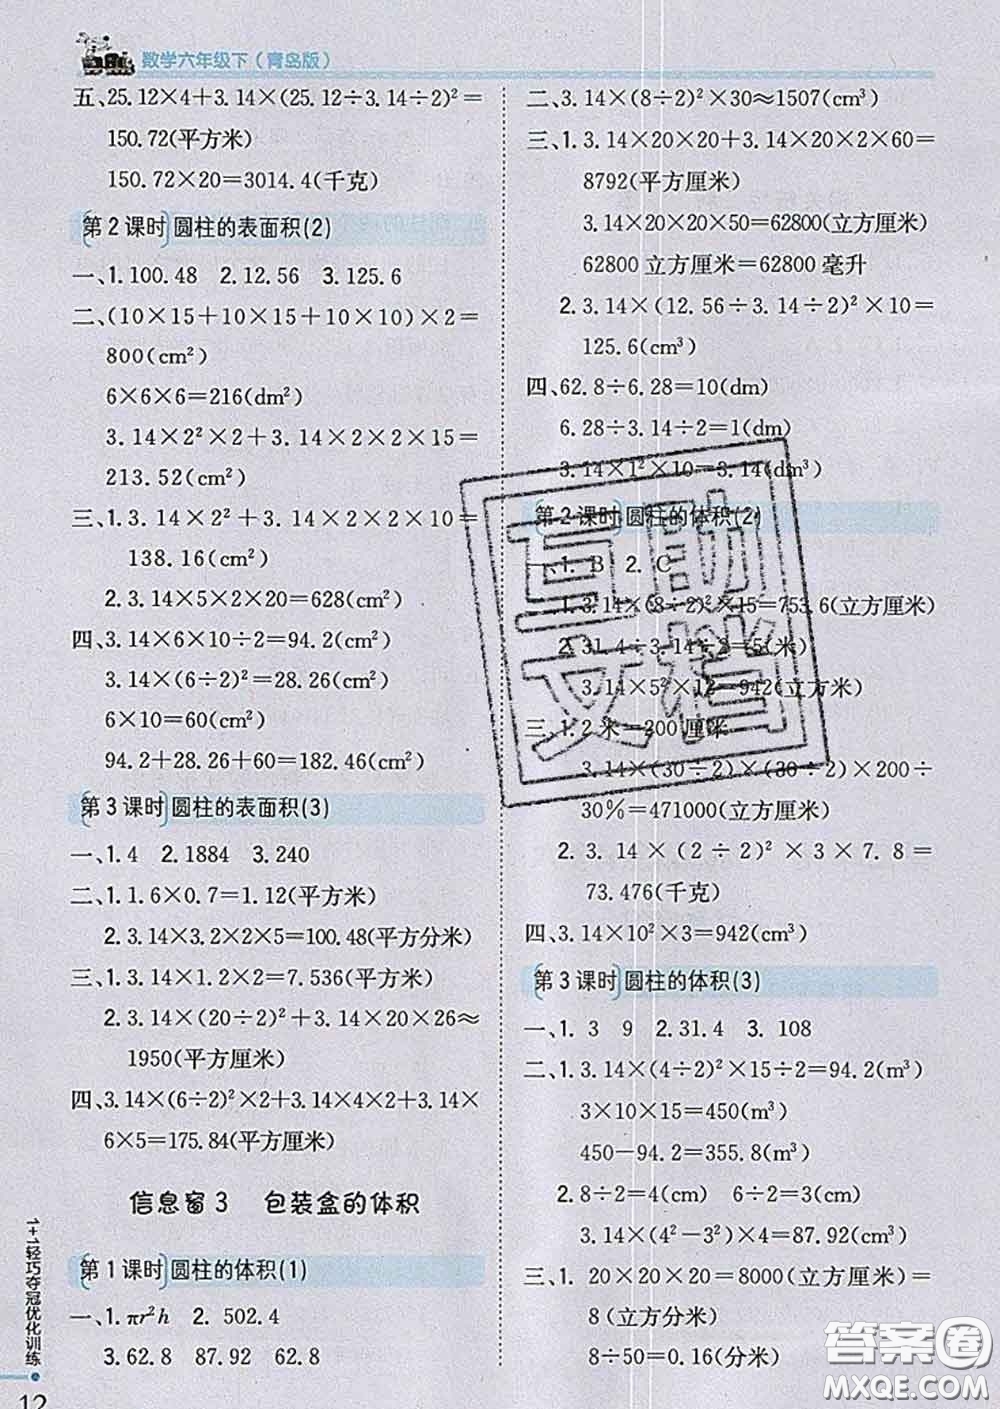 数学六年级下(青岛版)
五、25.12×4+3.14×(25.12÷3.14÷2)²=
150.72(平方米)
150.72×20=3014.4(千克)
第2课时 圆柱的表面积(2)
一、1.100.48 2.12.56 3.125.6
二、(10×15+10×10+10×15)×2=
800(cm²)
6×6×6=216(dm²)
3.14×2²×2+3.14×2×2×15=
213.52(cm²)
三、1.3.14×2²+3.14×2×2×10=
138.16(cm²)
2.3.14×5×2×20=628(cm²)
四、3.14×6×10÷2=94.2(cm²)
3.14×(6÷2)²=28.26(cm²)
6×10=60(cm²)
94.2+28.26+60=182.46(cm²)
第3课时 圆柱的表面积(3)
一、1.4 2.1884 3.240
二、1.1.6×0.7=1.12(平方米)
2.3.14×3.2×2×5=100.48(平方分米)
三、1.3.14×1.2×2=7.536(平方米)
2.3.14×(20÷2)²+3.14×20×26≈
1950(平方厘米)
四、3.14×(6÷2)²×2+3.14×4×2+3.14×
6×5=175.84(平方厘米)
信息窗3 包装盒的体积
第1课时 圆柱的体积(1)
一、1.πr²h 2.502.4
3.62.8 87.92 62.8
1+1轻巧夺冠优化训练
12
二、3.14×(8÷2)²×30≈1507(cm³)
三、1.3.14×20×20+3.14×20×2×60=
8792(平方厘米)
3.14×20×20×50=62800(立方厘米)
62800立方厘米=62800毫升
2.3.14×(12.56÷3.14÷2)²×10=
125.6(cm³)
四、62.8÷6.28=10(dm)
6.28÷3.14÷2=1(dm)
3.14×1²×10=3.14(dm³)
第2课时 圆柱的体积(2)
一、1. B 2. C
1.3.14×(8÷2)²×15=753.6(立方厘米)
2.31.4÷3.14÷2=5(米)
3.14×5²×12=942(立方米)
三、1.2米=200厘米
3.14×(30÷2)×(30÷2)×200÷
30%=471000(立方厘米)
2.3.14×(2÷2)²×3×7.8=
73.476(千克)
四、3.14×10²×3=942(cm³)
第3课时 圆柱的体积(3)
一、1. 3 9 2.31.4 3. 108
二、1.3.14×(4÷2)²×15÷2=94.2(cm³)
3×10×15=450(m³)
450-94.2=355.8(m³)
2.8÷2=4(cm) 6÷2=3(cm)
3.14×(4²-3²)×4=87.92(cm³)
三、1. 20×20×20=8000(立方厘米)=
8(立方分米)
8÷50=0.16(分米)
互助文档
答案圈
MXQE.COM